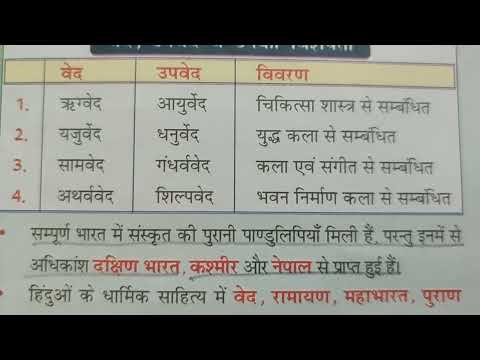 वेद उपवेद विवरण
1. ऋग्वेद आयुर्वेद चिकित्सा शास्त्र से सम्बंधित
2. यजुर्वेद धनुर्वेद युद्ध कला से सम्बंधित
3. सामवेद गंधर्ववेद कला एवं संगीत से सम्बंधित
4. अथर्ववेद शिल्पवेद भवन निर्माण कला से सम्बंधित
• सम्पूर्ण भारत में संस्कृत की पुरानी पाण्डुलिपियाँ मिली हैं, परन्तु इनमें से
अधिकांश दक्षिण भारत, कश्मीर और नेपाल से प्राप्त हुई हैं।
• हिंदुओं के धार्मिक साहित्य में वेद, रामायण, महाभारत, पुराण